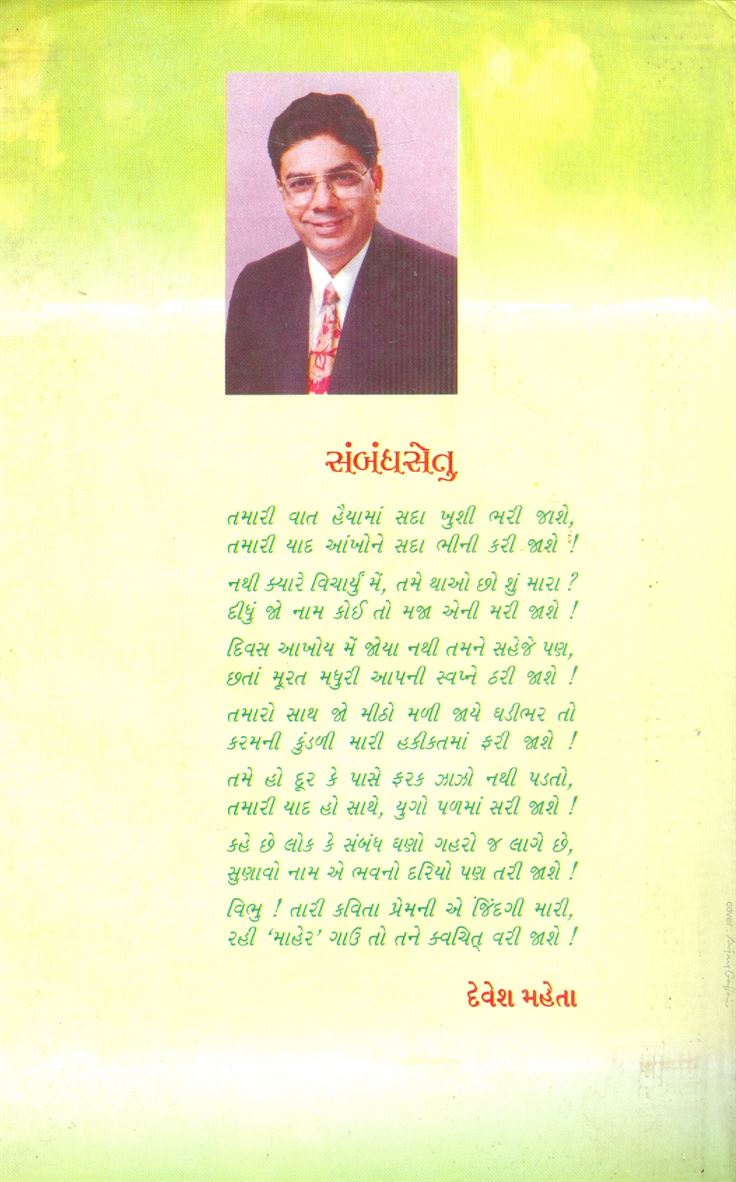 સંબંધસેતુ
તમારી વાત હૈયામાં સદા ખુશી ભરી જાશે,
તમારી યાદ આંખોને સદા ભીની કરી જાશે !
નથી ક્યારે વિચાર્યું મેં, તમે થાઓ છો શું મારા ?
દીધું જો નામ કોઈ તો મજા એની મરી જાશે !
દિવસ આખોય મેં જોયા નથી તમને સહેજે પણ,
છતાં મૂરત મધુરી આપની સ્વપ્ને ઠરી જાશે !
તમારો સાથ જો મીઠો મળી જાયે ઘડીભર તો
કરમની કુંડળી મારી હકીકતમાં ફરી જાશે !
તમે હો દૂર કે પાસે ફરક ઝાઝો નથી પડતો,
તમારી યાદ હો સાથે, યુગો પળમાં સરી જાશે !
કહે છે લોક કે સંબંધ ઘણો ગહરો જ લાગે છે,
સુણાવો નામ એ ભવનો દરિયો પણ તરી જાશે !
વિભુ ! તારી કવિતા પ્રેમની એ જિંદગી મારી,
રહી ‘માહેર’ ગાઉં તો તને ક્વચિત્ વરી જાશે !
દેવેશ મહેતા
cover: